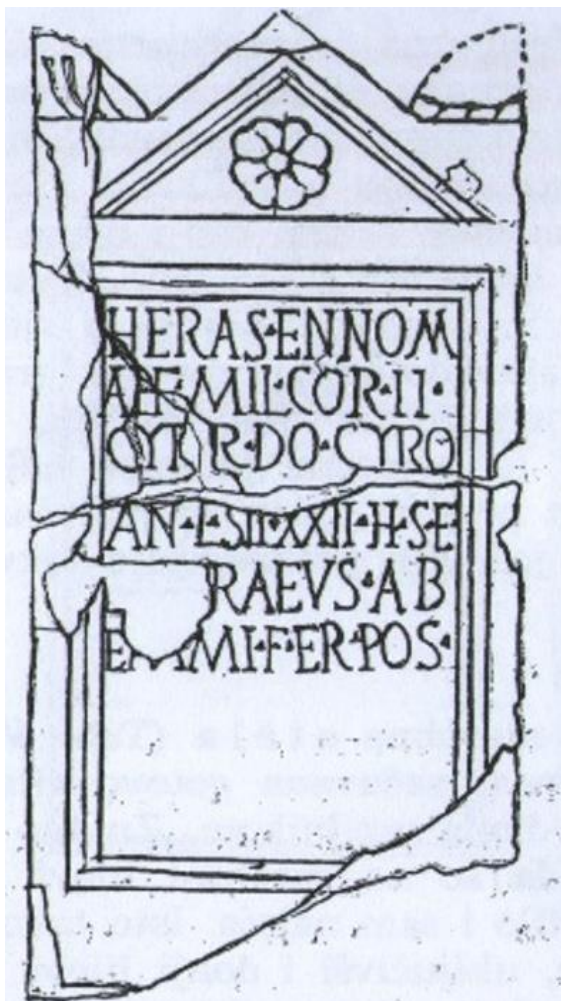 HERAS·ENNOM
AEF·MIL·COR·II·
DO·CYRO
AN·L· XXII·H·S·E
RAEVS·AB
MI·F·ER·POS·